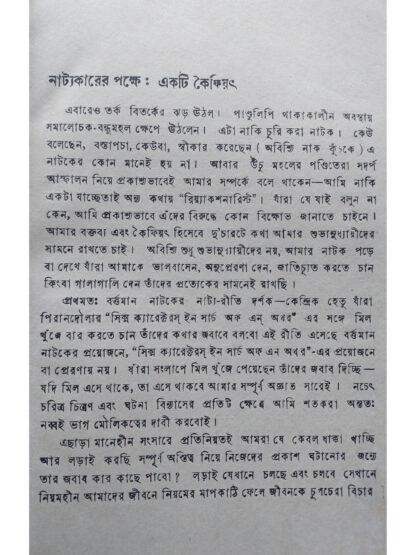 নাট্যকারের পক্ষে : একটি কৈফিয়ৎ
এবারেও তর্ক বিতর্কের ঝড় উঠল। পাণ্ডুলিপি থাকাকালীন অবস্থায়
সমালোচক-বন্ধুমহল ক্ষেপে উঠলেন। এটা নাকি চুরি করা নাটক। কেউ
বলেছেন, বস্তাপচা, কেউবা, স্বীকার করেছেন (অবিশ্যি নাক কুঁচকে) এ
নাটকের কোন মানেই হয় না। আবার উঁচু মহলের পণ্ডিতেরা সদর্প
আস্ফালন নিয়ে প্রকাশ্যভাবেই আমার সম্পর্কে বলে থাকেন—আমি নাকি
একটা যাচ্ছেতাই অন্য কথায় “রিয়্যাকশনারিস্ট”। যাঁরা যে যাই বলুন না
কেন, আমি প্রকাশ্যভাবে এঁদের বিরুদ্ধে কোন বিক্ষোভ জানাতে চাইনে।
আমার বক্তব্য এবং কৈফিয়ৎ হিসেবে দু'চারটে কথা আমার শুভানুধ্যায়ীদের
সামনে রাখতে চাই। অবিশ্যি শুধু শুভানুধ্যায়ীদের নয়, আমার নাটক পড়ে
বা দেখে যাঁরা আমাকে ভালবাসেন, অনুপ্রেরণা দেন, জাতিচ্যুত করতে চান
কিংবা গালাগালি দেন তাঁদের প্রত্যেকের সামনেই রাখছি।
প্রথমতঃ বর্ত্তমান নাটকের নাট্য-রীতি দর্শক—কেন্দ্রিক হেতু যাঁরা
পিরানদেল্লোর “সিক্স ক্যারেক্টরস্ ইন সার্চ অফ এন্ অথর” এর সঙ্গে মিল
খুঁজে বার করতে চান তাঁদের কথার জবাবে বলবো এই রীতি এসেছে বর্ত্তমান
নাটকের প্রয়োজনে, “সিক্স ক্যারেক্টরস্ ইন সার্চ অফ এন অথর”-এর প্রয়োজনে
বা প্রেরণায় নয়। যাঁরা সংলাপে মিল খুঁজে পেয়েছেন তাঁদের জবাব দিচ্ছি—
যদি মিল এসে থাকে, তা এসে থাকবে আমার সম্পূর্ণ অজ্ঞাত সারেই। নচেৎ
চরিত্র চিত্রণ এবং ঘটনা বিন্যাসের প্রতিটি ক্ষেত্রে আমি শতকরা অন্ততঃ
নব্বই ভাগ মৌলিকত্বের দাবী করবোই।
এছাড়া মানেহীন সংসারে প্রতিনিয়তই আমরা যে কেবল ধাক্কা খাচ্ছি
আর লড়াই করছি সম্পূর্ণ অস্তিত্ব নিয়ে নিজেদের প্রকাশ ঘটানোর জন্যে
তার জবাব কার কাছে পাবো? লড়াই যেখানে চলছে এবং চলবে সেখানে
নিয়মহীন আমাদের জীবনে নিয়মের মাপকাঠি ফেলে জীবনকে চুলচেরা বিচার